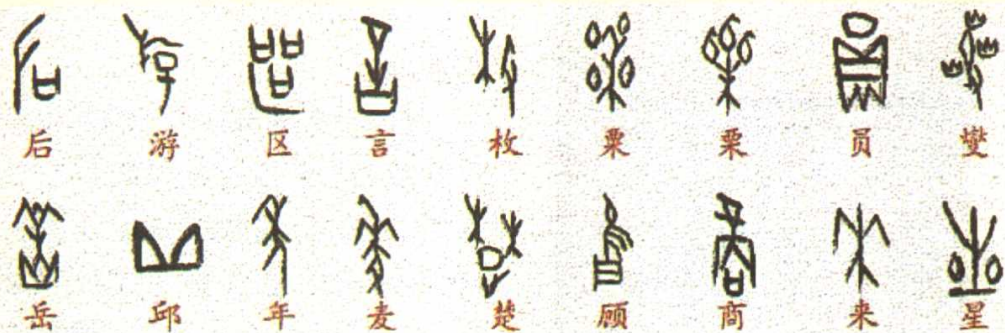 后 游 区 言 枚 粟 栗 员 燮
岳 邱 年 麦 楚 顾 商 来 星